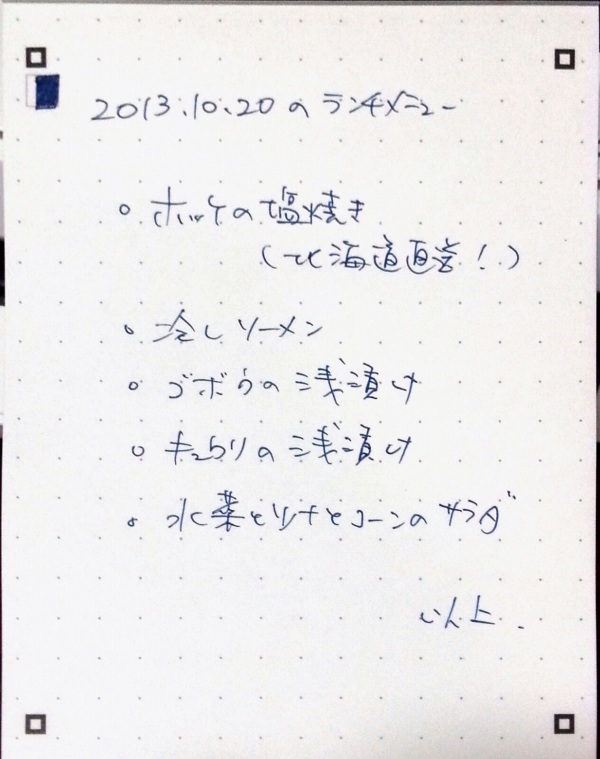 2013.10.20のランチメニュー
。ホッケの塩焼き
(北海道直営!)
。冷しソーメン
。ゴボウの浅漬け
。キュウリの浅漬け
。水菜とツナとコーンのサラダ
以上.